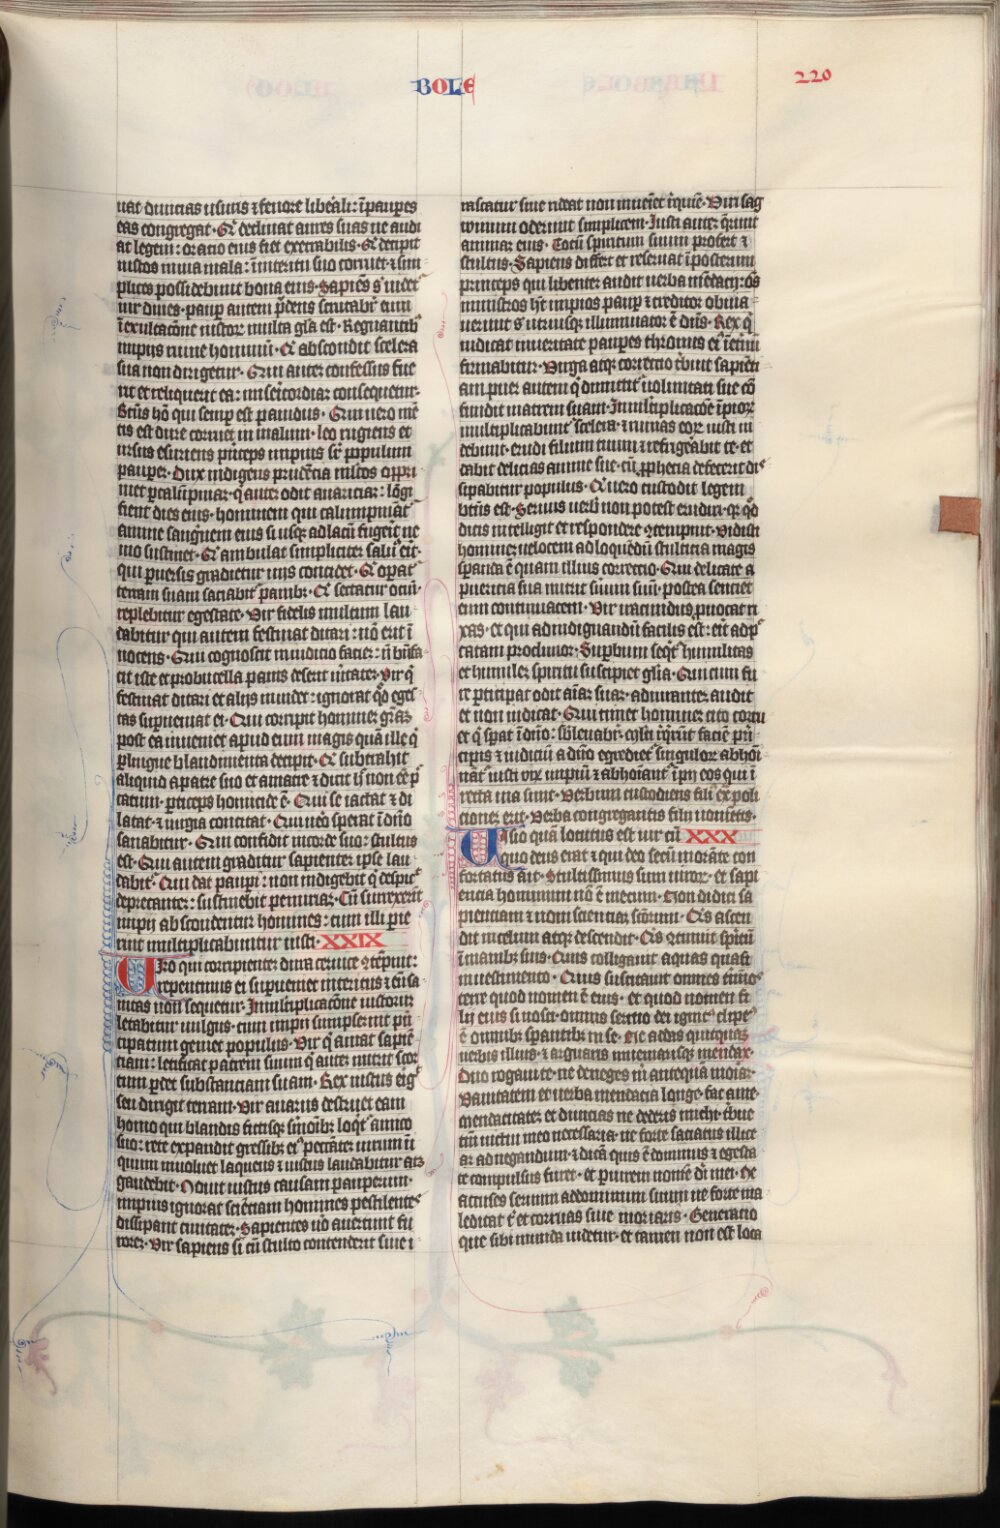 BOLE
220
uat diuicias usuris & fenore liberali: ī paupes
eas congregat. Qi declinat aures suas ne audi
at legem: oratio eius fiet execrabilis. Qi decipit
iustos in uia mala: ī interitu suo corruet. & sim
plices possidebunt bona eius. Sapiēs sʼ uidetʼ
uir diues. paup autem prudens scrutabit eum
ī exultacōne iustor multa gla est. Regnantibʼ
impijs ruine hominū. Qi abscondit scelera
sua non dirigetur. Qui autez confessus fue
rit et reliquerit ea: misericordiaz consequetur.
Btūs hō qui semp est pauidus. Qui uero mē
tis est dure corruet in malum. leo rugiens et
ursus esuriens princeps impius sr populum
pauper. Dux indigens prudēcia multos oppri
met p calūpniaz. q autez odit auariciaz: lōgi
fient dies eius. hominem qui calumpniatʼ
anime sanguinem eius si usqz ad lacū fugerit ne
mo sustinet. Qi ambulat simpliciter saluʼ eit.
qui puersis gradietur uijs concidet. Qi opatʼ
terram suam saciabitʼ panibz. Qi sectatur ociū.
replebitur egestate. Vir fidelis multum lau
dabitur qui autem festinat ditari: nō erit ī
nocens. Qui cognoscit in iudicio faciez: ñ bñfa
cit iste et pro bucella panis deserit uitatez. Vir q
festinat ditari et alijs inuidet: ignorat qo eges
tas supueniat ei. Qui corripit hominez grāz
post ea inueniet apud eum magis quā ille q
p lingue blandimenta decipit. Qi subtrahit
aliquid a patre suo et a matre & dicit hʼ non eē pʼ
catum. pticeps homicide ē. Qui se iactat & di
latat. & iurgia concitat. Qui uero sperat ī dñō
sanabitur. Qui confidit in corde suo: stultus
est. Qui autem graditur sapienter ipse lau
dabitʼ. Qui dat paupi: non indigebit. q despicʼ
deprecantez: sustinebit penuriaz. Cū surrexerit
impij abscondentur homines: cum illi pie
rint multiplicabuntur iusti. XXIX
Viro qui corripientez dura ceruice ɔtēpnit:
repentinus ei supueniet interitus & eū sa
nitas non sequetur. In multiplicacōne iustoruz
letabitur uulgus. cum impij sumpserint prin
cipatum gemet populus. Vir q amat sapiē
tiam: letificat patrem suum. q autez nutrit scor
tum pdet substanciam suam. Rex iustus eigʼ
seu dirigit terram. Vir auarus destruet eam
homo qui blandis fictisqz smōibz loqtʼ amico
suo: rete expandit gressibz eiʼ peccātez uirum ī
quum inuoluet laqueus & iustus laudabitur atz
gaudebit. Nouit iustus causam pauperum.
impius ignorat sciēciam homines pestilentesʼ
dissipant ciuitatez. Sapientes uō auertunt fu
rorez. Vir sapiens si cū stulto contenderit siue i
rascatur siue rideat non inueīet rquiē. Viri sag
winum oderunt simplicem. Iusti autez qrunt
animaz eius. Totū spiritum suum profert &
stultus. Sapiens differt et reseruat ī posterum
princeps qui libenter audit uerba mēdacij: oēs
ministros hēt impios paup & creditor obuia
uerunt sʼ utriusqz illuminator ē dūs. Rex q
iudicat in ueritate paupes thronus eiʼ ī etnū
firmabitur. Virga atqz correctio tbuit sapiēti
am. puer autem q dimittitʼ uoluntati sue cō
fundit matrem suam. In multiplicacōe īpioꝝ
multiplicabuntʼ scelera. & ruinas eoꝝ iusti ui
debunt. erudi filium tuum & refrigerabit te. et
dabit delicias anime tue. cū ꝓphecia defecerit diʼ
sipabitur populus. Qi uero custodit legem
btūs est. Seruus uerbʼ non potest erudiri. qz qo
dicis intelligit et respondere ɔtempnit. Vidisti
hominez uelocem ad loquēdū stulticia magis
spanda ē quam illius correctio. Qui delicate a
puericia sua nutrit suum suū. postea senciet
eum contumacem. Vir iracundus ꝓuocat ri
xas. et qui ad indignandū facilis est: eit ad pʼ
catam procliuior. Supbum seqtʼ humilitas
et humilez spiritu suscipiet glia. Qui cum fu
re pticipat odit aīaz suaz. adiurantez audit
et non iudicat. Qui timet hominez cito corru
et q spat ī dñō: subleuabitʼ. multi rqrūt faciē pri
cipis & iudiciū a dñō egredietʼ singuloꝝ abhoī
nātʼ iusti uirz impiū & abhoīantʼ īpij eos qui ī
recta uia sunt. Verbum custodiens fili exʼ pdi
cionez erit. Verba congregantis filij uomētis.
Uisio quā locutus est uir cū XXX
quo deus erat & qui deo secū morāte con
fortatus ait. Stultissimus sum uiroꝝ. et sapi
encia hominum nō ē mecum. Non didici sa
pienciam & noui scienciaz scōrum. Qis ascen
dit in celum atqz descendit. Qis ɔtinuit spiritū
ī manibz suis. Quis colligauit aquas quasi
in uestimento. Quis suscitauit omnes tīnosʼ
terre quod nomen ē eius. et quod nomen fi
lij eius si nosti. omnis sermo dei ignitʼ clipeʼ
ē omibz spantibz in se. Ne adas quicquaz
uerbis illius. & arguaris inueniarisqz mendax.
Duo rogaui te. ne deneges m̄ anteqūā moriaz.
Vanitatem et uerba mendacia longe fac a me.
mendacitatez et diuicias ne dederis michi. tbue
tm̄ uictui meo necessaria. ne forte saciatus illice
ar ad negandum. & dicā quis ē dominus & egesta
te compulsus furer. et piurem nomē di mei. Ne
accuses seruum ad dominum suum ne forte ma
ledicat tʼ et corruas siue moriaris. Generatio
que sibi munda uidetur. et tamen non est lota